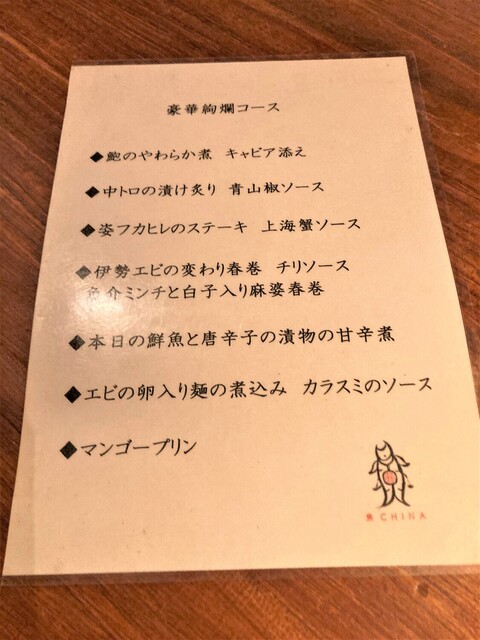 豪華絢爛コース
◆鮑のやわらか煮 キャビア添え
◆中トロの漬け炙り 青山椒ソース
◆姿フカヒレのステーキ 上海蟹ソース
◆伊勢エビの変わり春巻 チリソース
魚介ミンチと白子入り麻婆春巻
◆本日の鮮魚と唐辛子の漬物の甘辛煮
◆エビの卵入り麺の煮込み カラスミのソース
◆マンゴープリン
魚CHINA